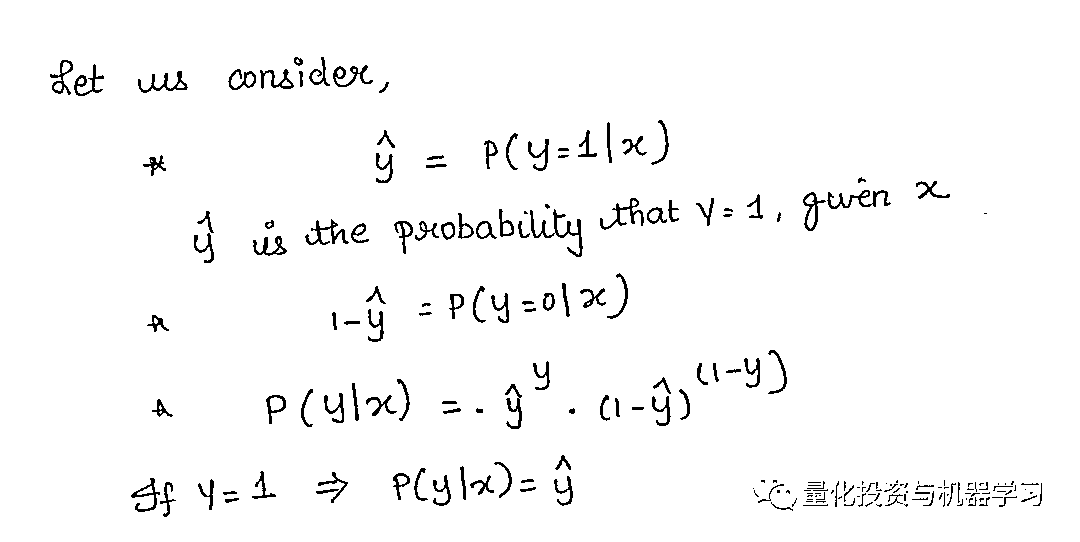 Let us consider,
* ŷ = P(y=1|x)
ŷ is the probability that y=1, given x
* 1-ŷ = P(y=0|x)
* P(y|x) = . ŷ^y . (1-ŷ)^(1-y)
If y=1 ⇒ P(y|x)=ŷ
量化投资与机器学习